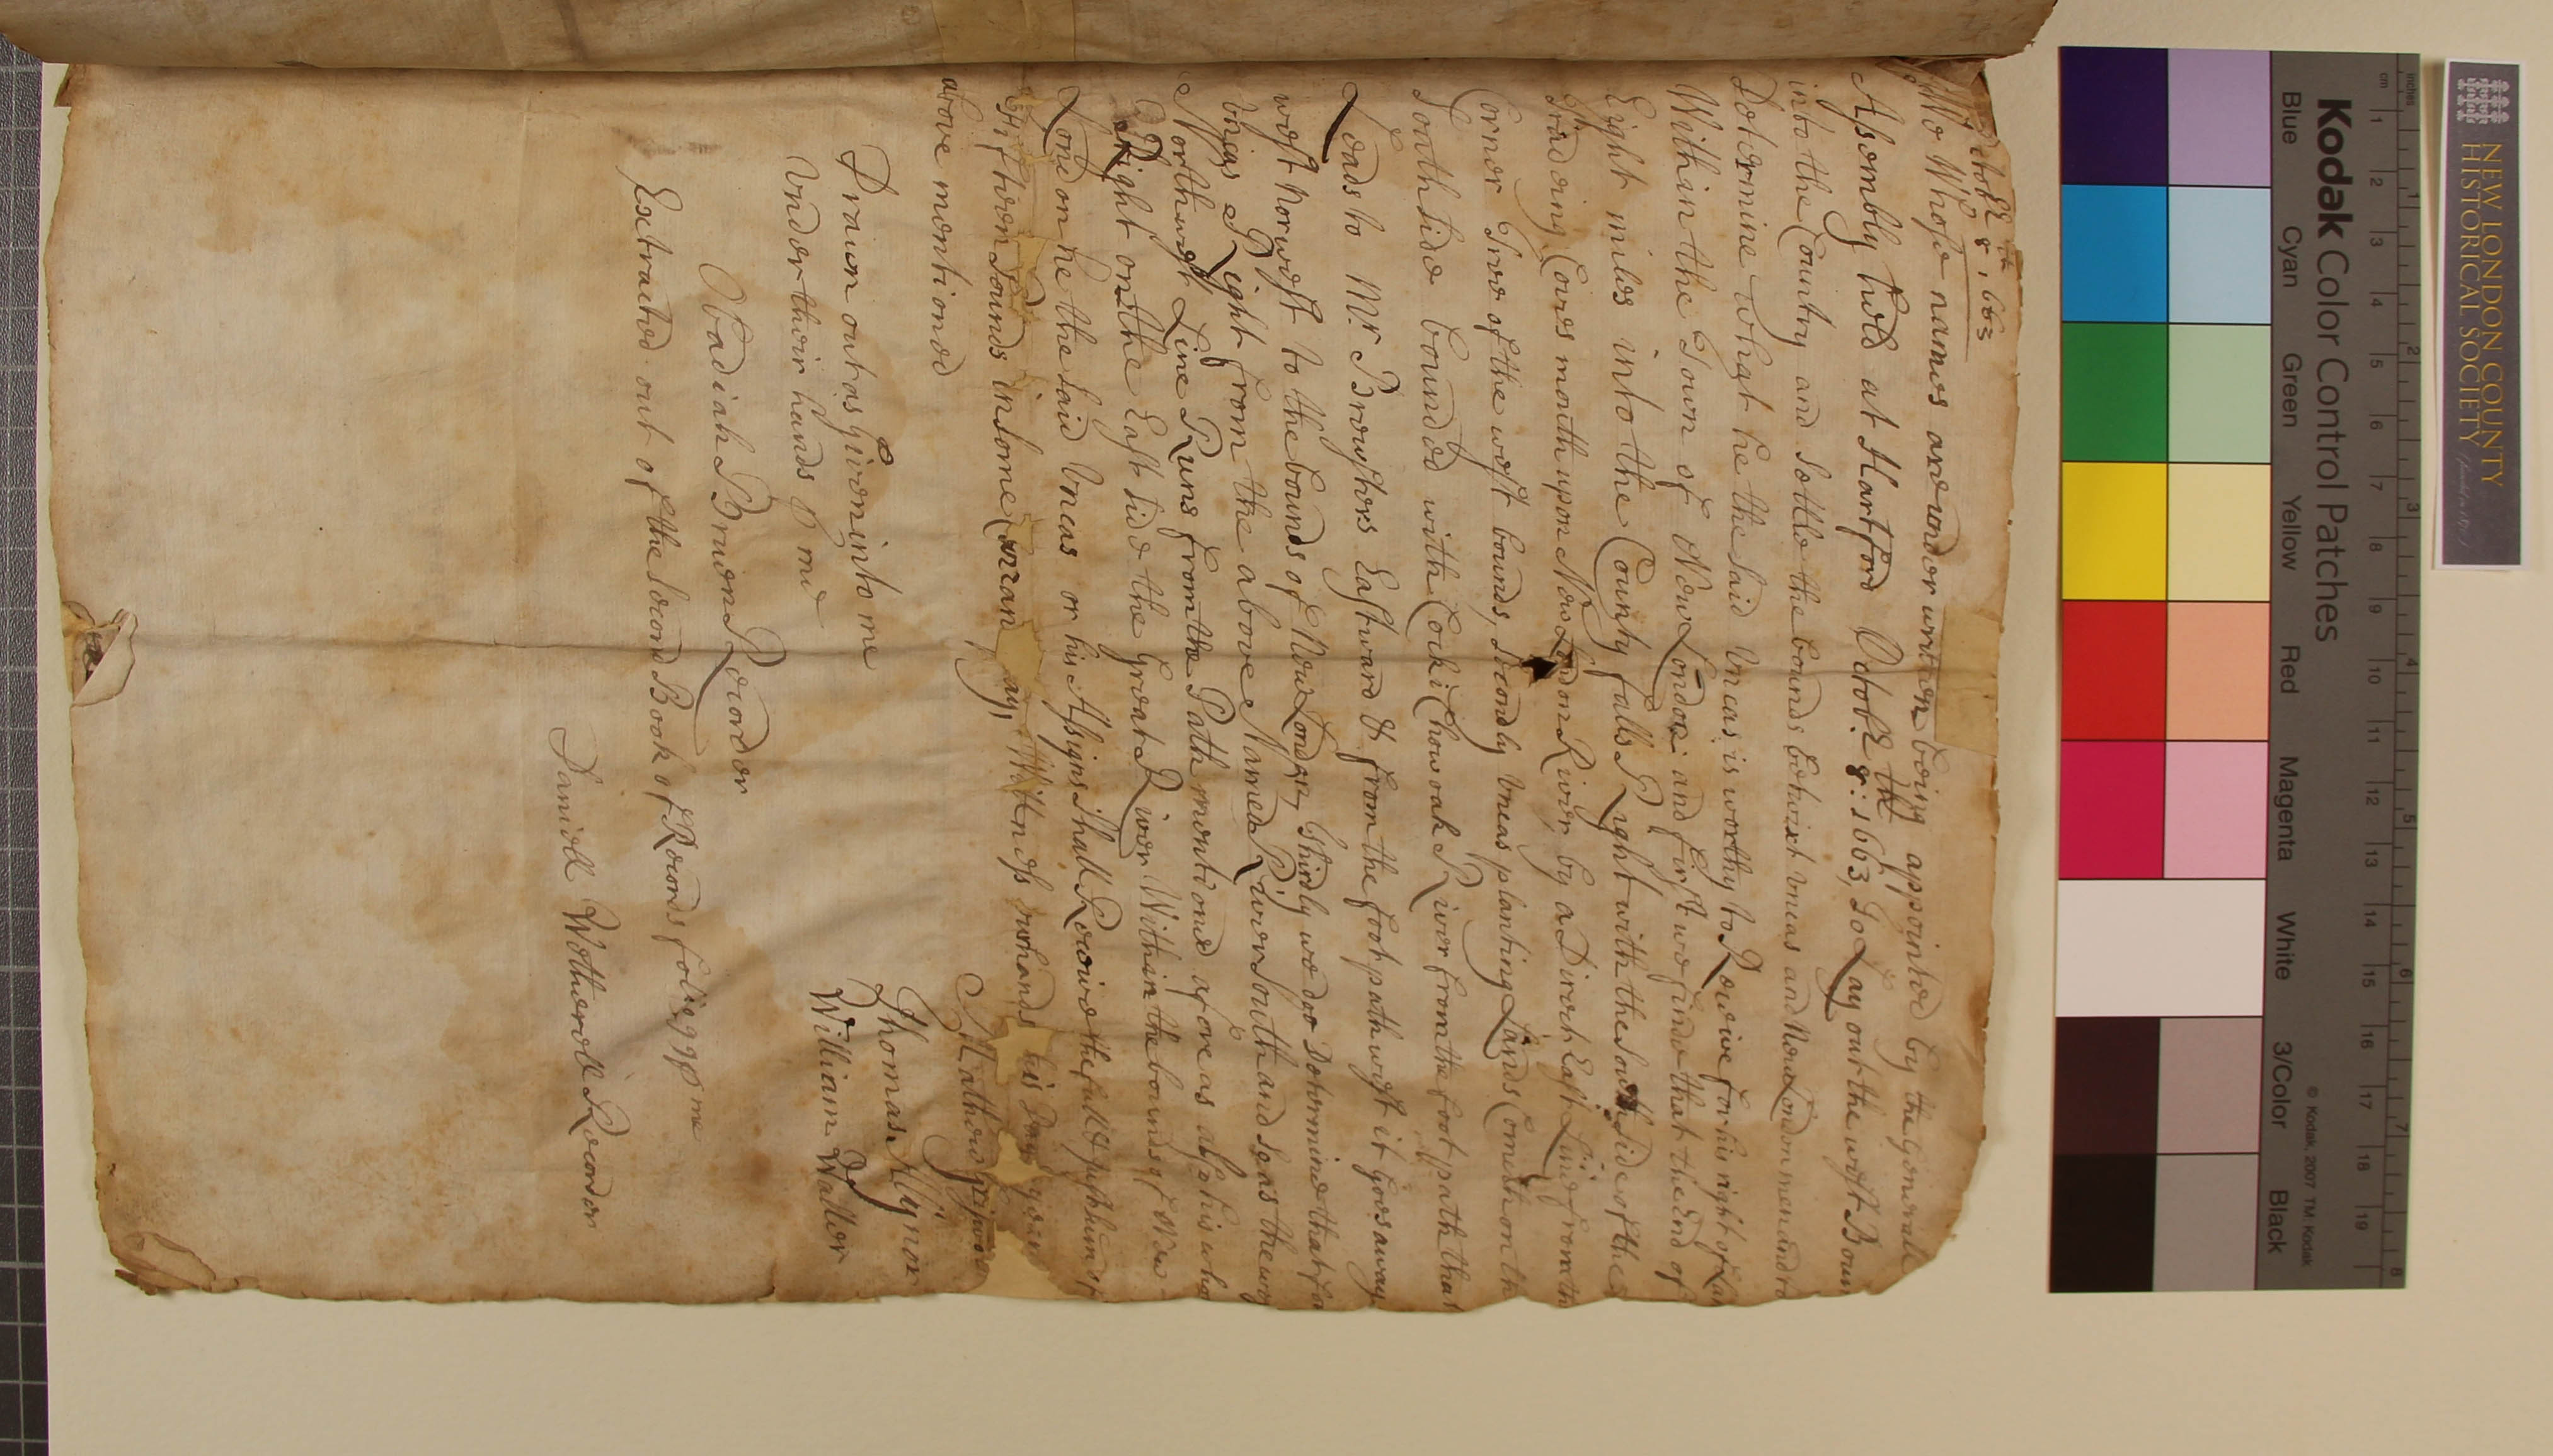 Octobr 8th 1663
Wo Whose names are underwriten being appointed by the Generall
Assembly held at Hartford Octobr the 8: 1663, To Lay out the west Boun
into the Country and Settle the bounds betwixt Uncas and New London men and to
Determine what he the said Uncas is worthy to Receive for his right of Lan
Within the Town of New London and first we finde that the End of
Eight miles into the Country falls Right with the South Side of the
Tradeing Coves mouth upon New London River by a Direct East Line from th
Corner Tree of the west bounds, Secondly Uncas planting Lands Cometh on th
South side bounded with Cocki Chowoak River from the foot path that
Leads to Mr Brewsters Eastward & from the foot path west it Goes away
west Norwest to the bounds of New London, Thirdly we doe Determine that for
Uncas Right from the above Named River South and Soe as the
Northwest Line Runs from the Path mentioned afore as also his who
Right on the East Side the Great River Within the bounds of New
London he the said Uncas or his Assigns Shall Receive the full & Just Sum of
Fifteen Pounds in Some Curran pay, Wittness our hands this Day
above mentioned
Mathew Griswo
Thomas Allyn
William Waller
Drawn out as Given into me
Under their hands p me
Obadiah Bruen Recorder
Extracted out of the Second Book of Records folio 99 p me
Daniell Wetherell Recorder
Kodak Color Control Patches
© Kodak, 2007 TM Kodak
Blue Cyan Green Yellow Red Magenta White 3/Color Black
inches 1 2 3 4 5 6 7 8
cm 1 2 3 4 5 6 7 8 9 10 11 12 13 14 15 16 17 18 19
NEW LONDON COUNTY
HISTORICAL SOCIETY